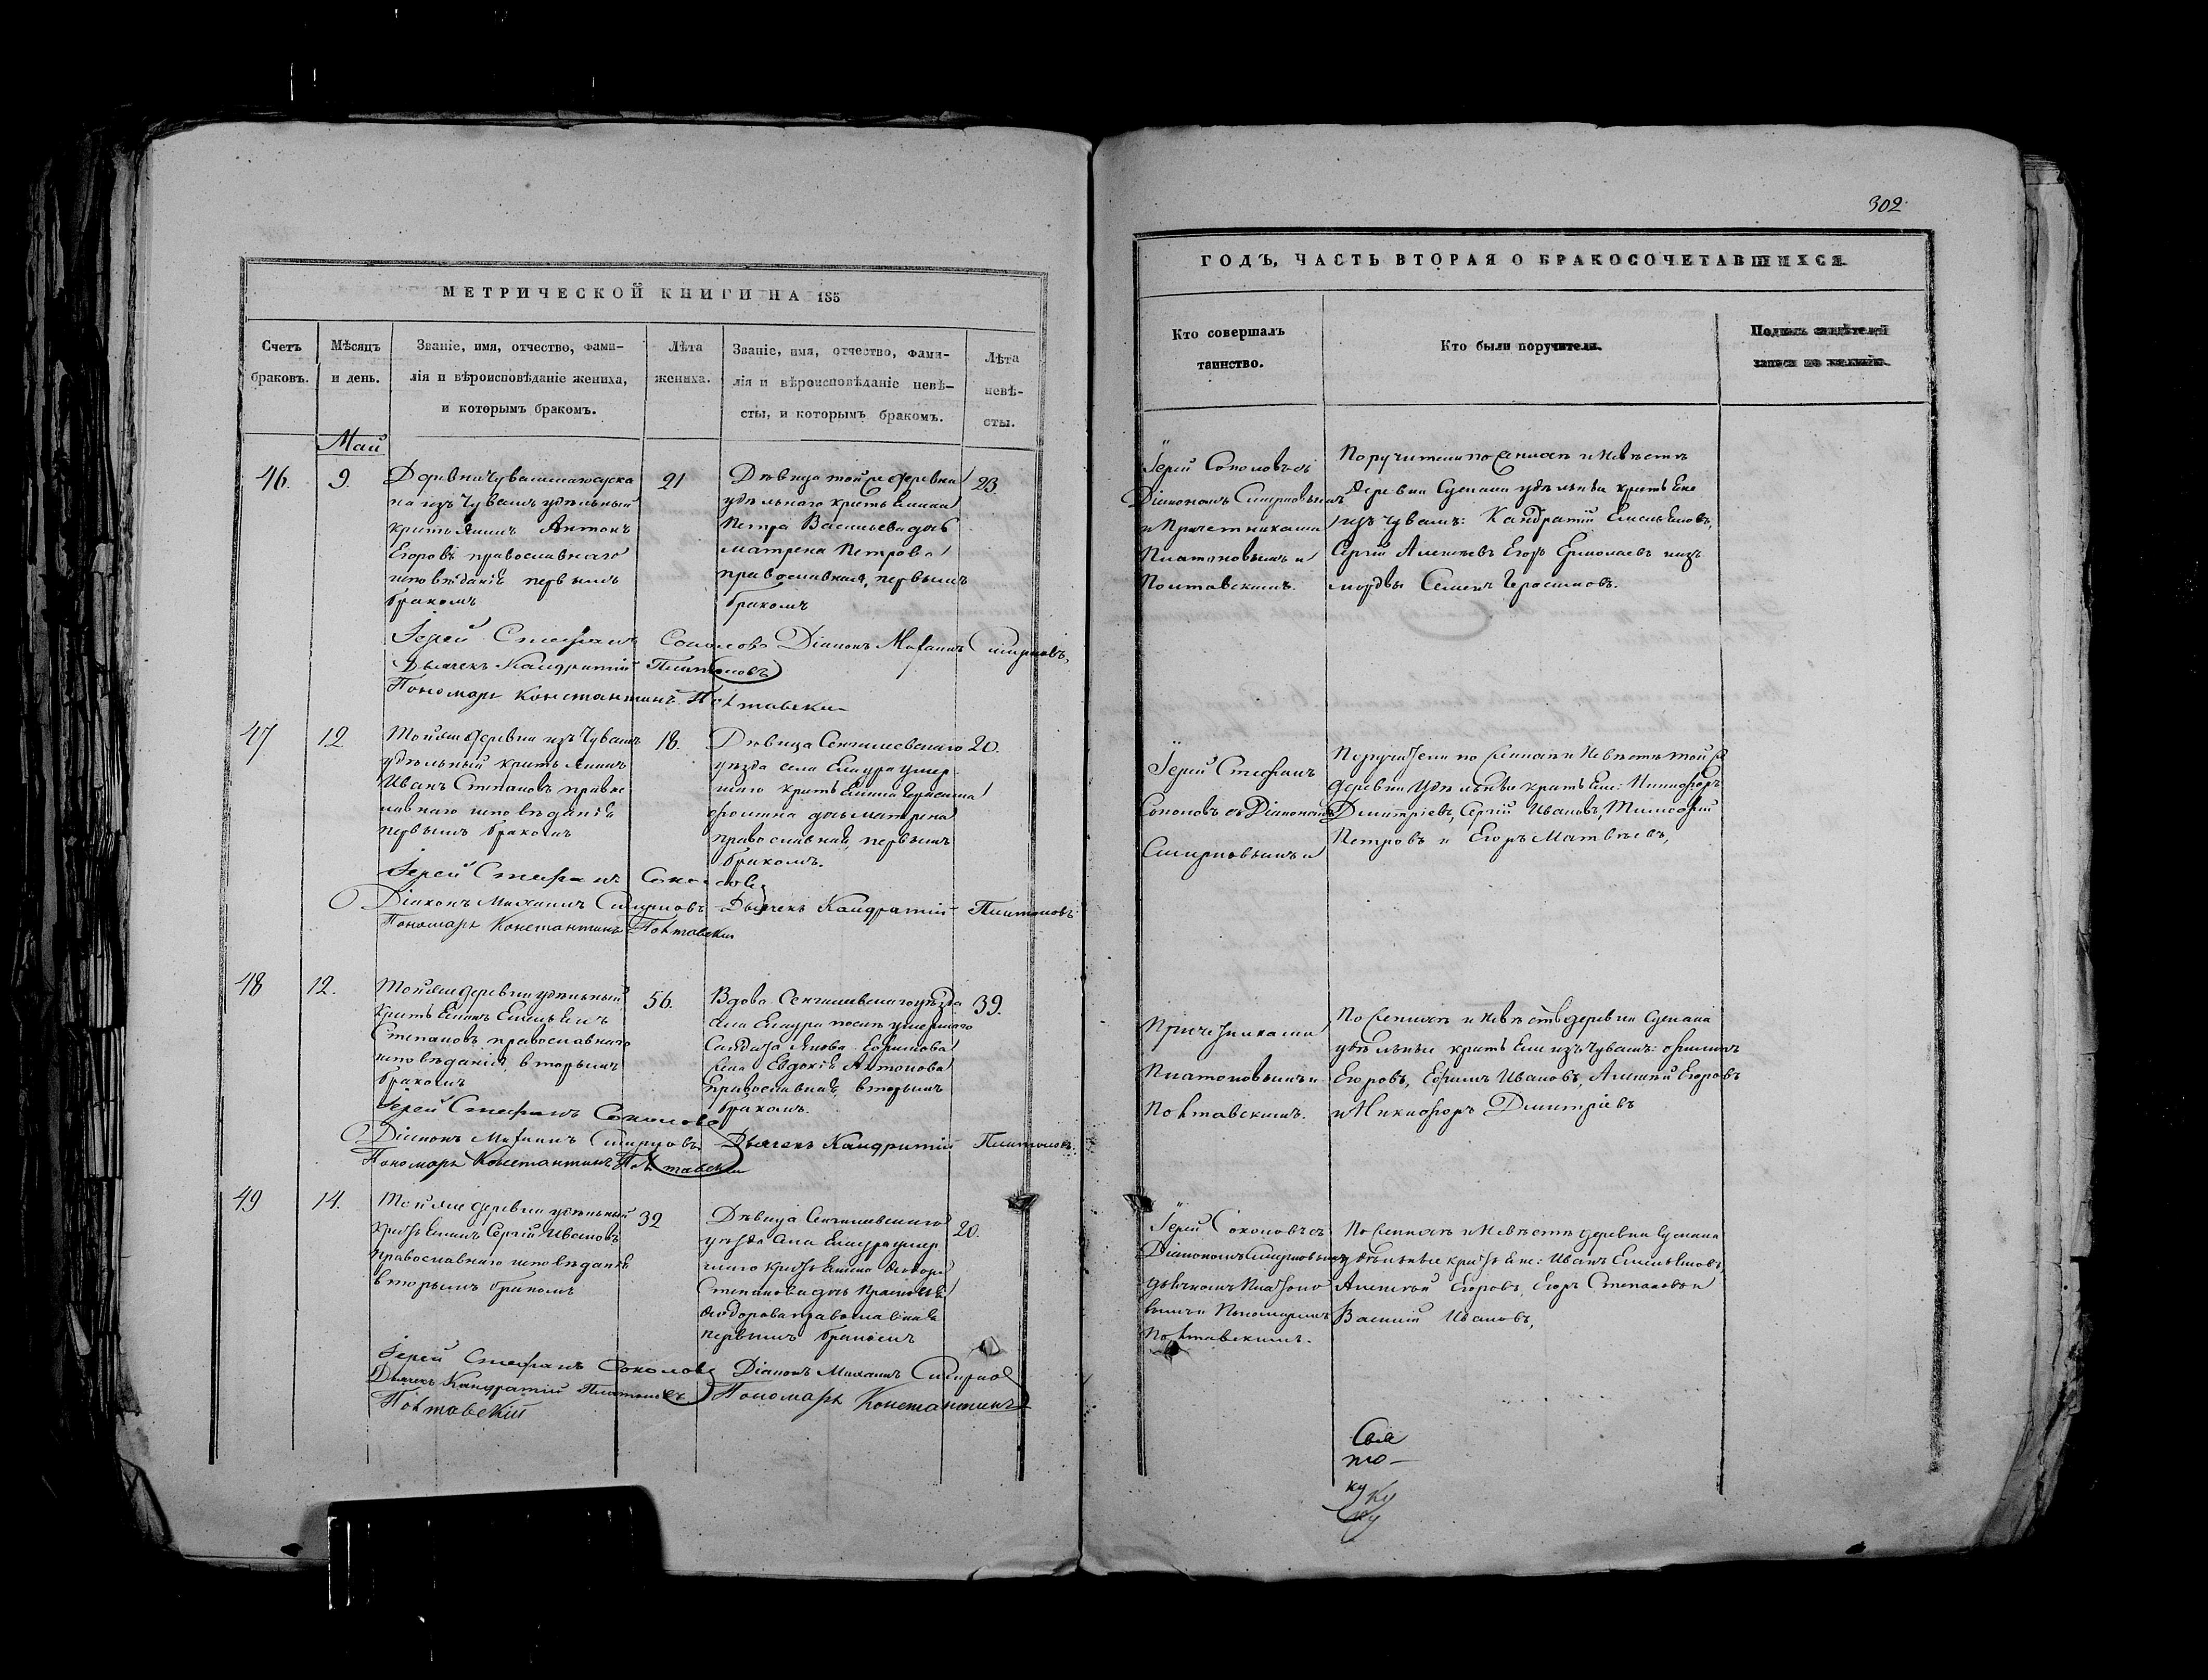 302
МЕТРИЧЕСКОЙ КНИГИ НА 185
Счетъ браковъ.
Мѣсяцъ и день.
Званіе, имя, отчество, фами-
лія и вѣроисповѣданіе жениха,
и которымъ бракомъ.
Лѣта жениха.
Званіе, имя, отчество, фами-
лія и вѣроисповѣданіе невѣ-
сты, и которымъ бракомъ.
Лѣта
невѣ-
сты.
Май
46.
9.
Деревни
на изъ Чувашъ удѣльный
крестьянинъ Антонъ
Егоровъ православнаго
исповѣданія первымъ
бракомъ
21
Дѣвица той же деревни
удѣльнаго крестьянина
Петра Васильева дочь
Матрена Петрова
православная, первымъ
бракомъ
23.
Іерей Стефанъ Соколовъ Діаконъ Михаилъ Смирновъ,
Дьячекъ Кандратій Платоновъ
Пономарь Константинъ Полтавскій
47
12
Той же деревни изъ Чувашъ
удѣльный крестьянинъ
Иванъ Степановъ правос
лавнаго исповѣданія
первымъ бракомъ
18.
Дѣвица Сенгилеевскаго
уѣзда села Елаура умер
шаго крестьянина Герасима
Фомина дочь Матрена
православная, первымъ
бракомъ.
20.
Іерей Стефанъ Соколовъ
Діаконъ Михаилъ Смирновъ Дьячекъ Кандратій Платоновъ
Пономарь Константинъ Полтавскій
48
12.
Той же деревни удѣльный
крестьянинъ Емельянъ
Степановъ православнаго
исповѣданія, вторымъ
бракомъ
56.
Вдова Сенгилеевскаго уѣзда
села Елаура послѣ умершаго
Солдата Якова Ефимова
жена Евдокія Антонова
православная, вторымъ
бракомъ.
39.
Іерей Стефанъ Соколовъ
Діаконъ Михаилъ Смирновъ Дьячекъ Кандратій Платоновъ.
Пономарь Константинъ Полтавскій
49
14.
Той же деревни удѣльный
крестьянинъ Сергѣй Ивановъ
православнаго исповѣданія
вторымъ бракомъ
32
Дѣвица Сенгилеевскаго
уѣзда села Елаура умер
шаго крестьянина Ѳедора
Степанова дочь
Ѳедорова православная
первымъ бракомъ
20.
Іерей Стефанъ Соколовъ Діаконъ Михаилъ Смирновъ
Дьячекъ Кандратій Платоновъ Пономарь Константинъ
Полтавскій
ГОДЪ, ЧАСТЬ ВТОРАЯ О БРАКОСОЧЕТАВШИХСЯ
Кто совершалъ
таинство.
Кто были поручители.
Подпись свидѣтелей
записи по желанію.
Іерей Соколовъ съ
Діакономъ Смирновымъ
и Причетниками
Платоновымъ и
Полтавскимъ.
Поручители по женихѣ и невѣстѣ
деревни удѣльные крестьяне
изъ чувашъ: Кандратій Емельяновъ,
Сергѣй Алексѣевъ Егоръ Ермолаевъ изъ
мордвы Семенъ Герасимовъ.
Іерей Стефанъ
Соколовъ съ Діакономъ
Смирновымъ и
Поручители по женихѣ и невѣстѣ той же
деревни удѣльные крестьяне: Никифоръ
Дмитріевъ, Сергѣй Ивановъ, Тимофей
Петровъ и Егоръ Матвѣевъ,
Причетниками
Платоновымъ и
Полтавскимъ.
По женихѣ и невѣстѣ деревни
удѣльные крестьяне изъ чувашъ: Филиппъ
Егоровъ, Ефимъ Ивановъ, Алексѣй Егоровъ
и Никифоръ Дмитріевъ
Іерей Соколовъ съ
Діакономъ Смирновымъ
дьячкомъ Платоно
вымъ и Пономаремъ
Полтавскимъ.
По женихѣ и невѣстѣ деревни
удѣльные крестьяне: Иванъ Емельяновъ,
Алексѣй Егоровъ, Егоръ Степановъ и
Василій Ивановъ,